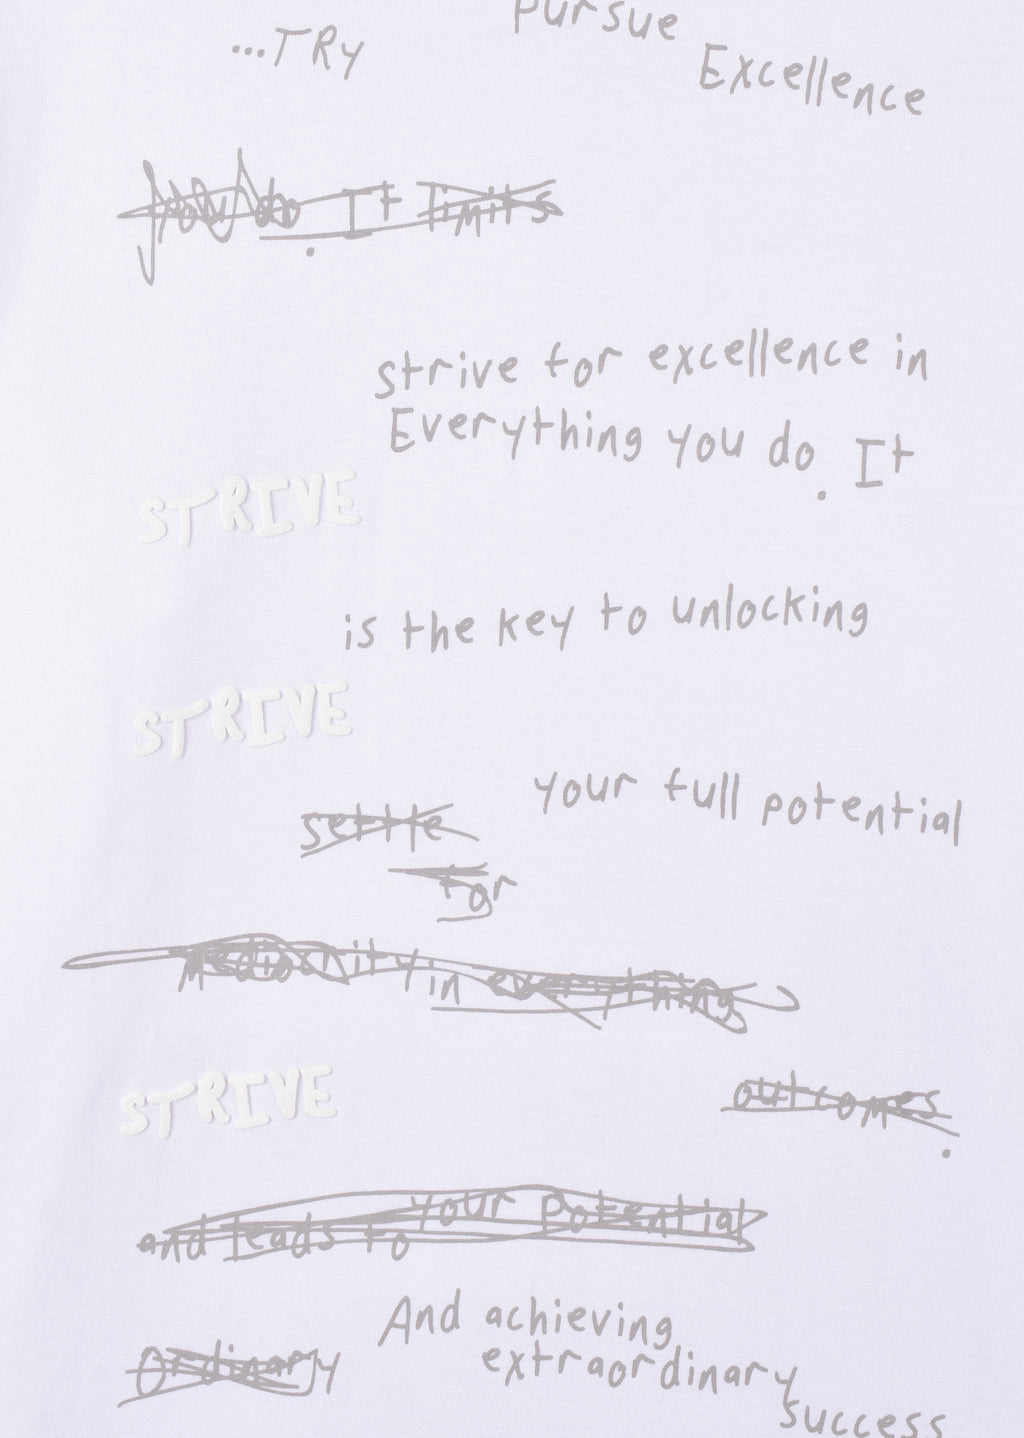 pursue
...TRY
Excellence
you do. It limits
strive for excellence in
Everything you do. It
STRIVE
is the key to unlocking
STRIVE
your full potential
settle
for
mediocrity in everything
STRIVE
outcomes.
your potential
and leads to
And achieving
ordinary
extraordinary
success